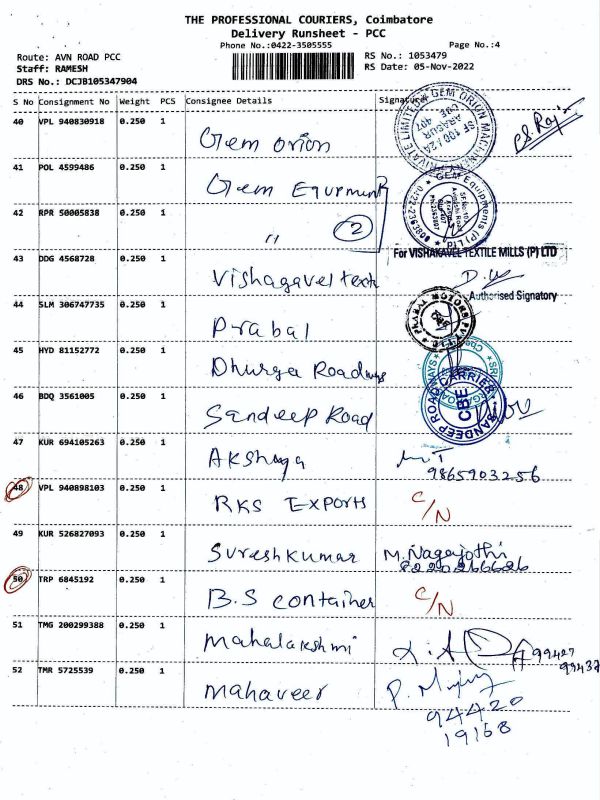 THE PROFESSIONAL COURIERS, Coimbatore
Delivery Runsheet - PCC
Phone No.:0422-3505555
Page No.:4
Route: AVN ROAD PCC
RS No.: 1053479
Staff: RAMESH
RS Date: 05-Nov-2022
DRS No.: DCJB105347904
S No Consignment No Weight PCS Consignee Details Signature
40 VPL 940830918 0.250 1 Gem orion
GEM ORION MACHINERY PRIVATE LIMITED
SF 100/2A
ARASUR
CBE 407
41 POL 4599486 0.250 1 Gem Equrment
GEM Equipments (P) LTD
42 RPR 50005838 0.250 1 " 2
43 DDG 4568728 0.250 1 Vishagavel text
For VISHAKAVEL TEXTILE MILLS (P) LTD
Authorised Signatory
44 SLM 306747735 0.250 1 Prabal
PRABAL MOTORS PVT LTD
45 HYD 81152772 0.250 1 Dhurga Roadways
46 BDQ 3561005 0.250 1 Sandeep Road
SANDEEP ROAD CARRIER
CBE
47 KUR 694105263 0.250 1 Akshaya
9865903256
48 VPL 940898103 0.250 1 RKS Exports C/N
49 KUR 526827093 0.250 1 Sureshkumar M. Nagajothi
50 TRP 6845192 0.250 1 B.S container C/N
51 TMG 200299388 0.250 1 Mahalakshmi
99427
99437
52 TMR 5725539 0.250 1 Mahaveer
94420
19168